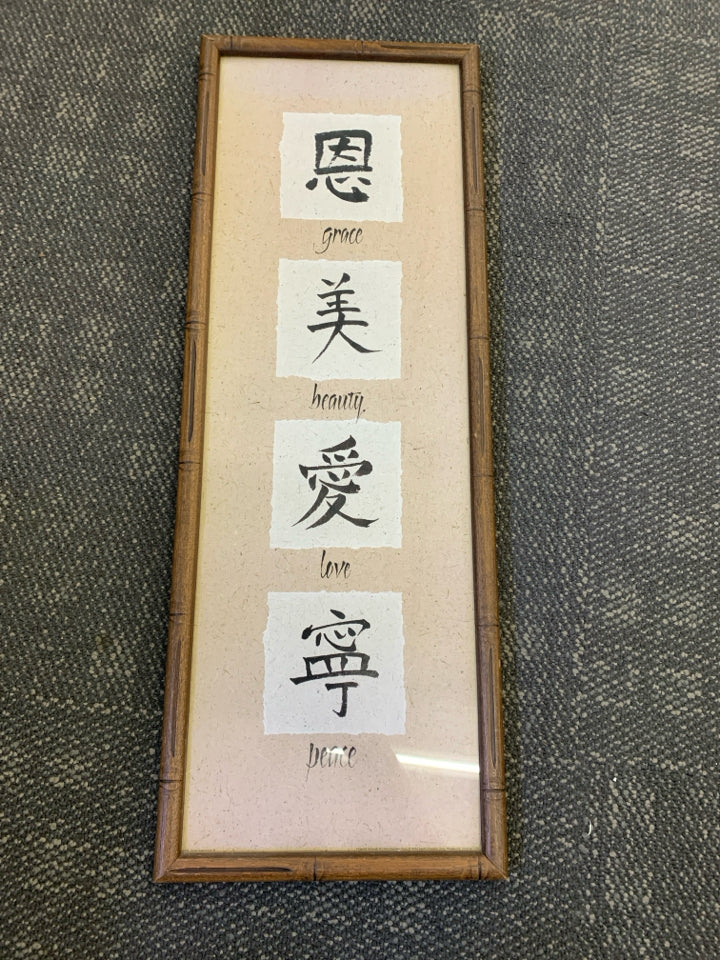 恩
grace
美
beauty
愛
love
寧
peace